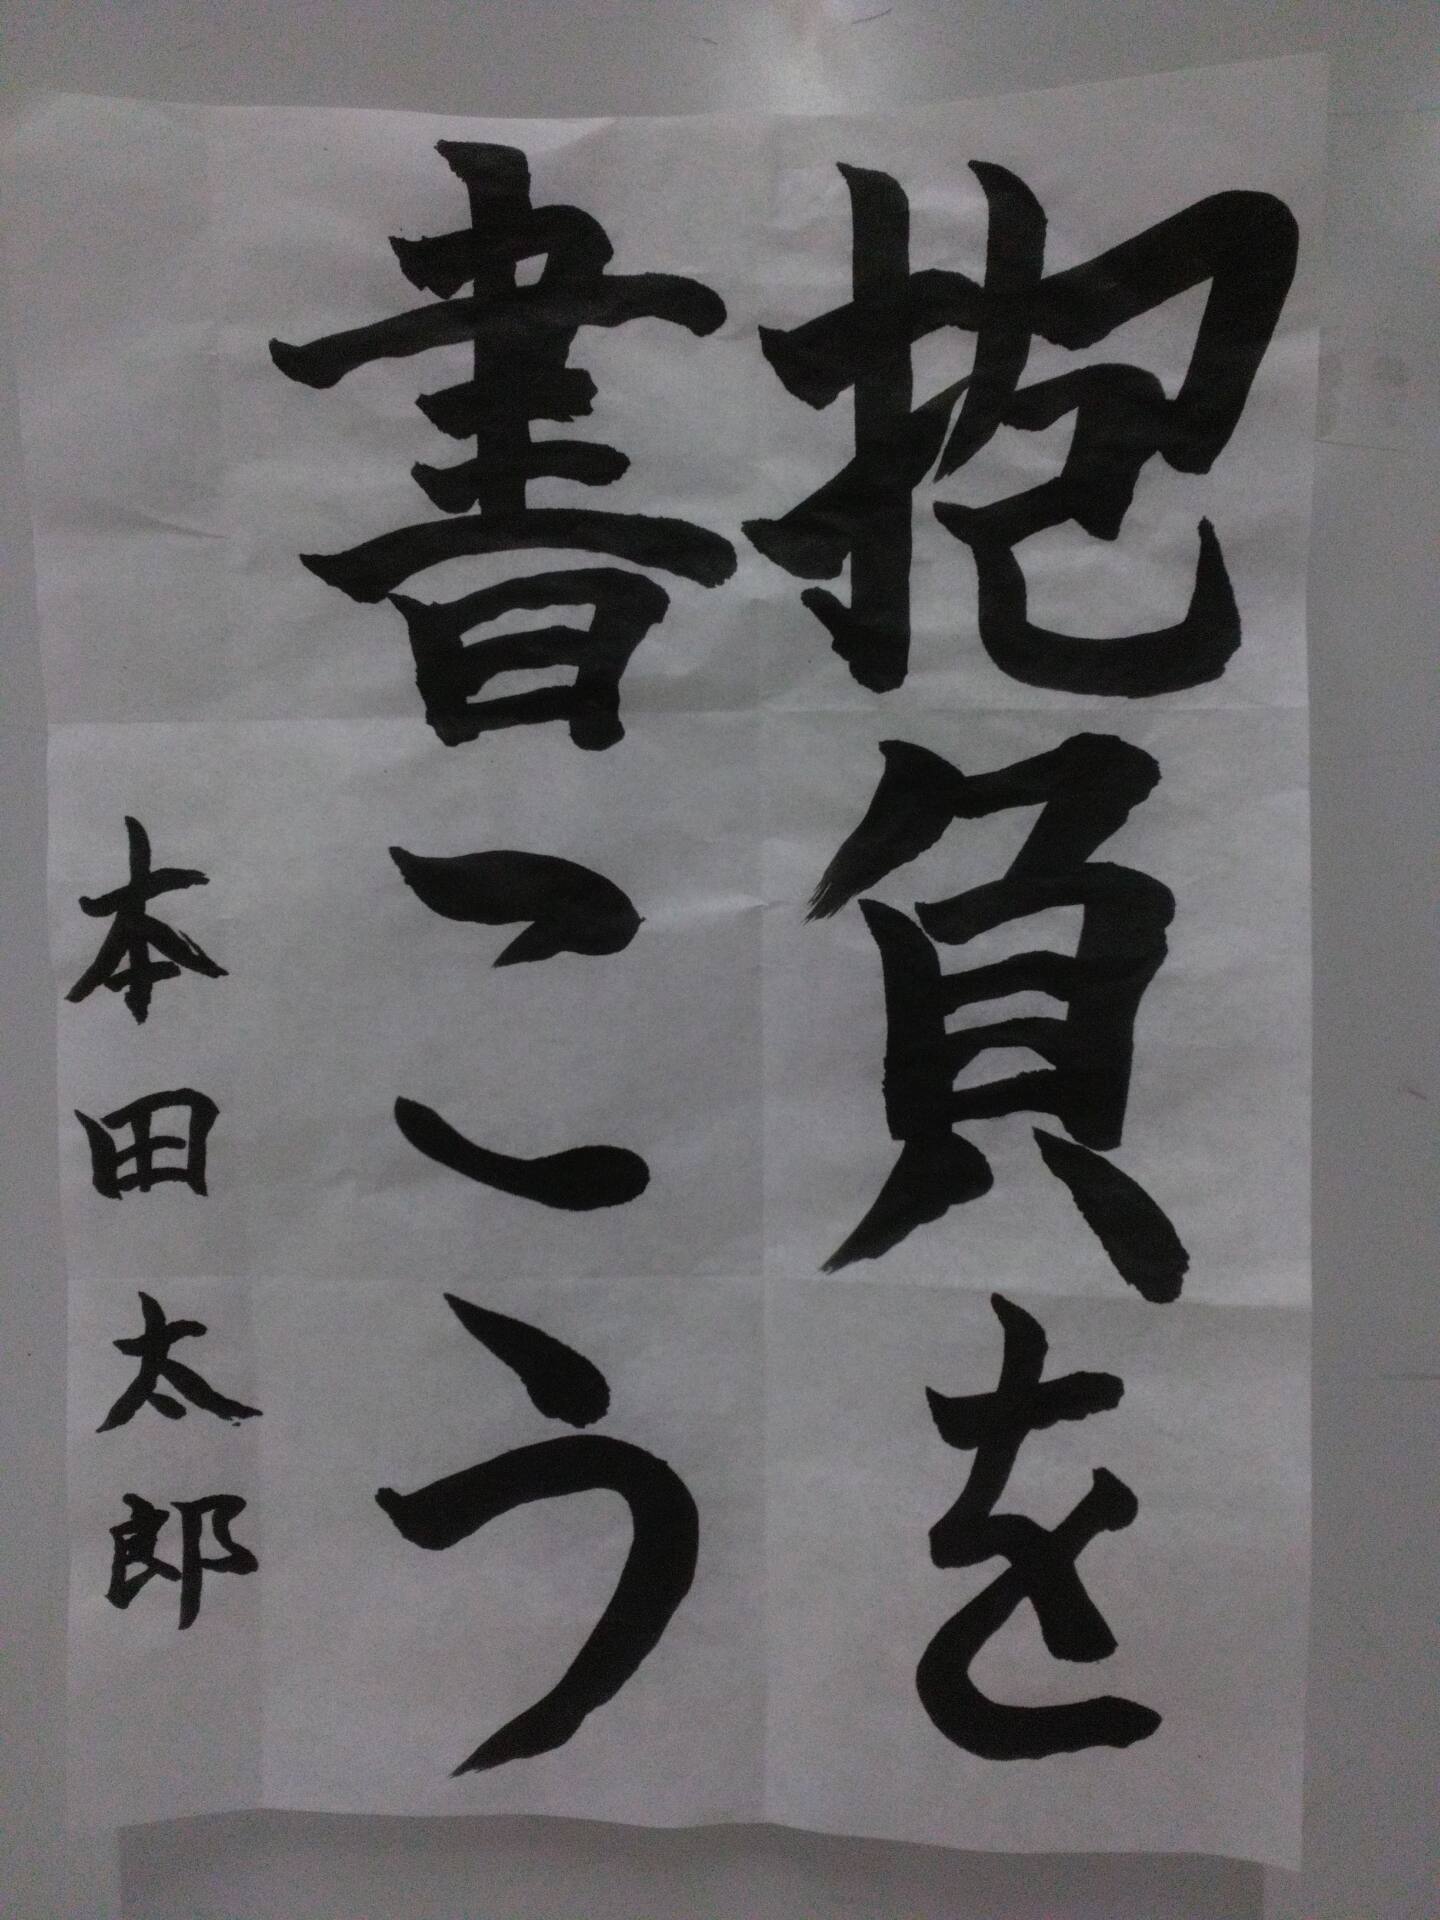 抱負を
書こう
本田太郎